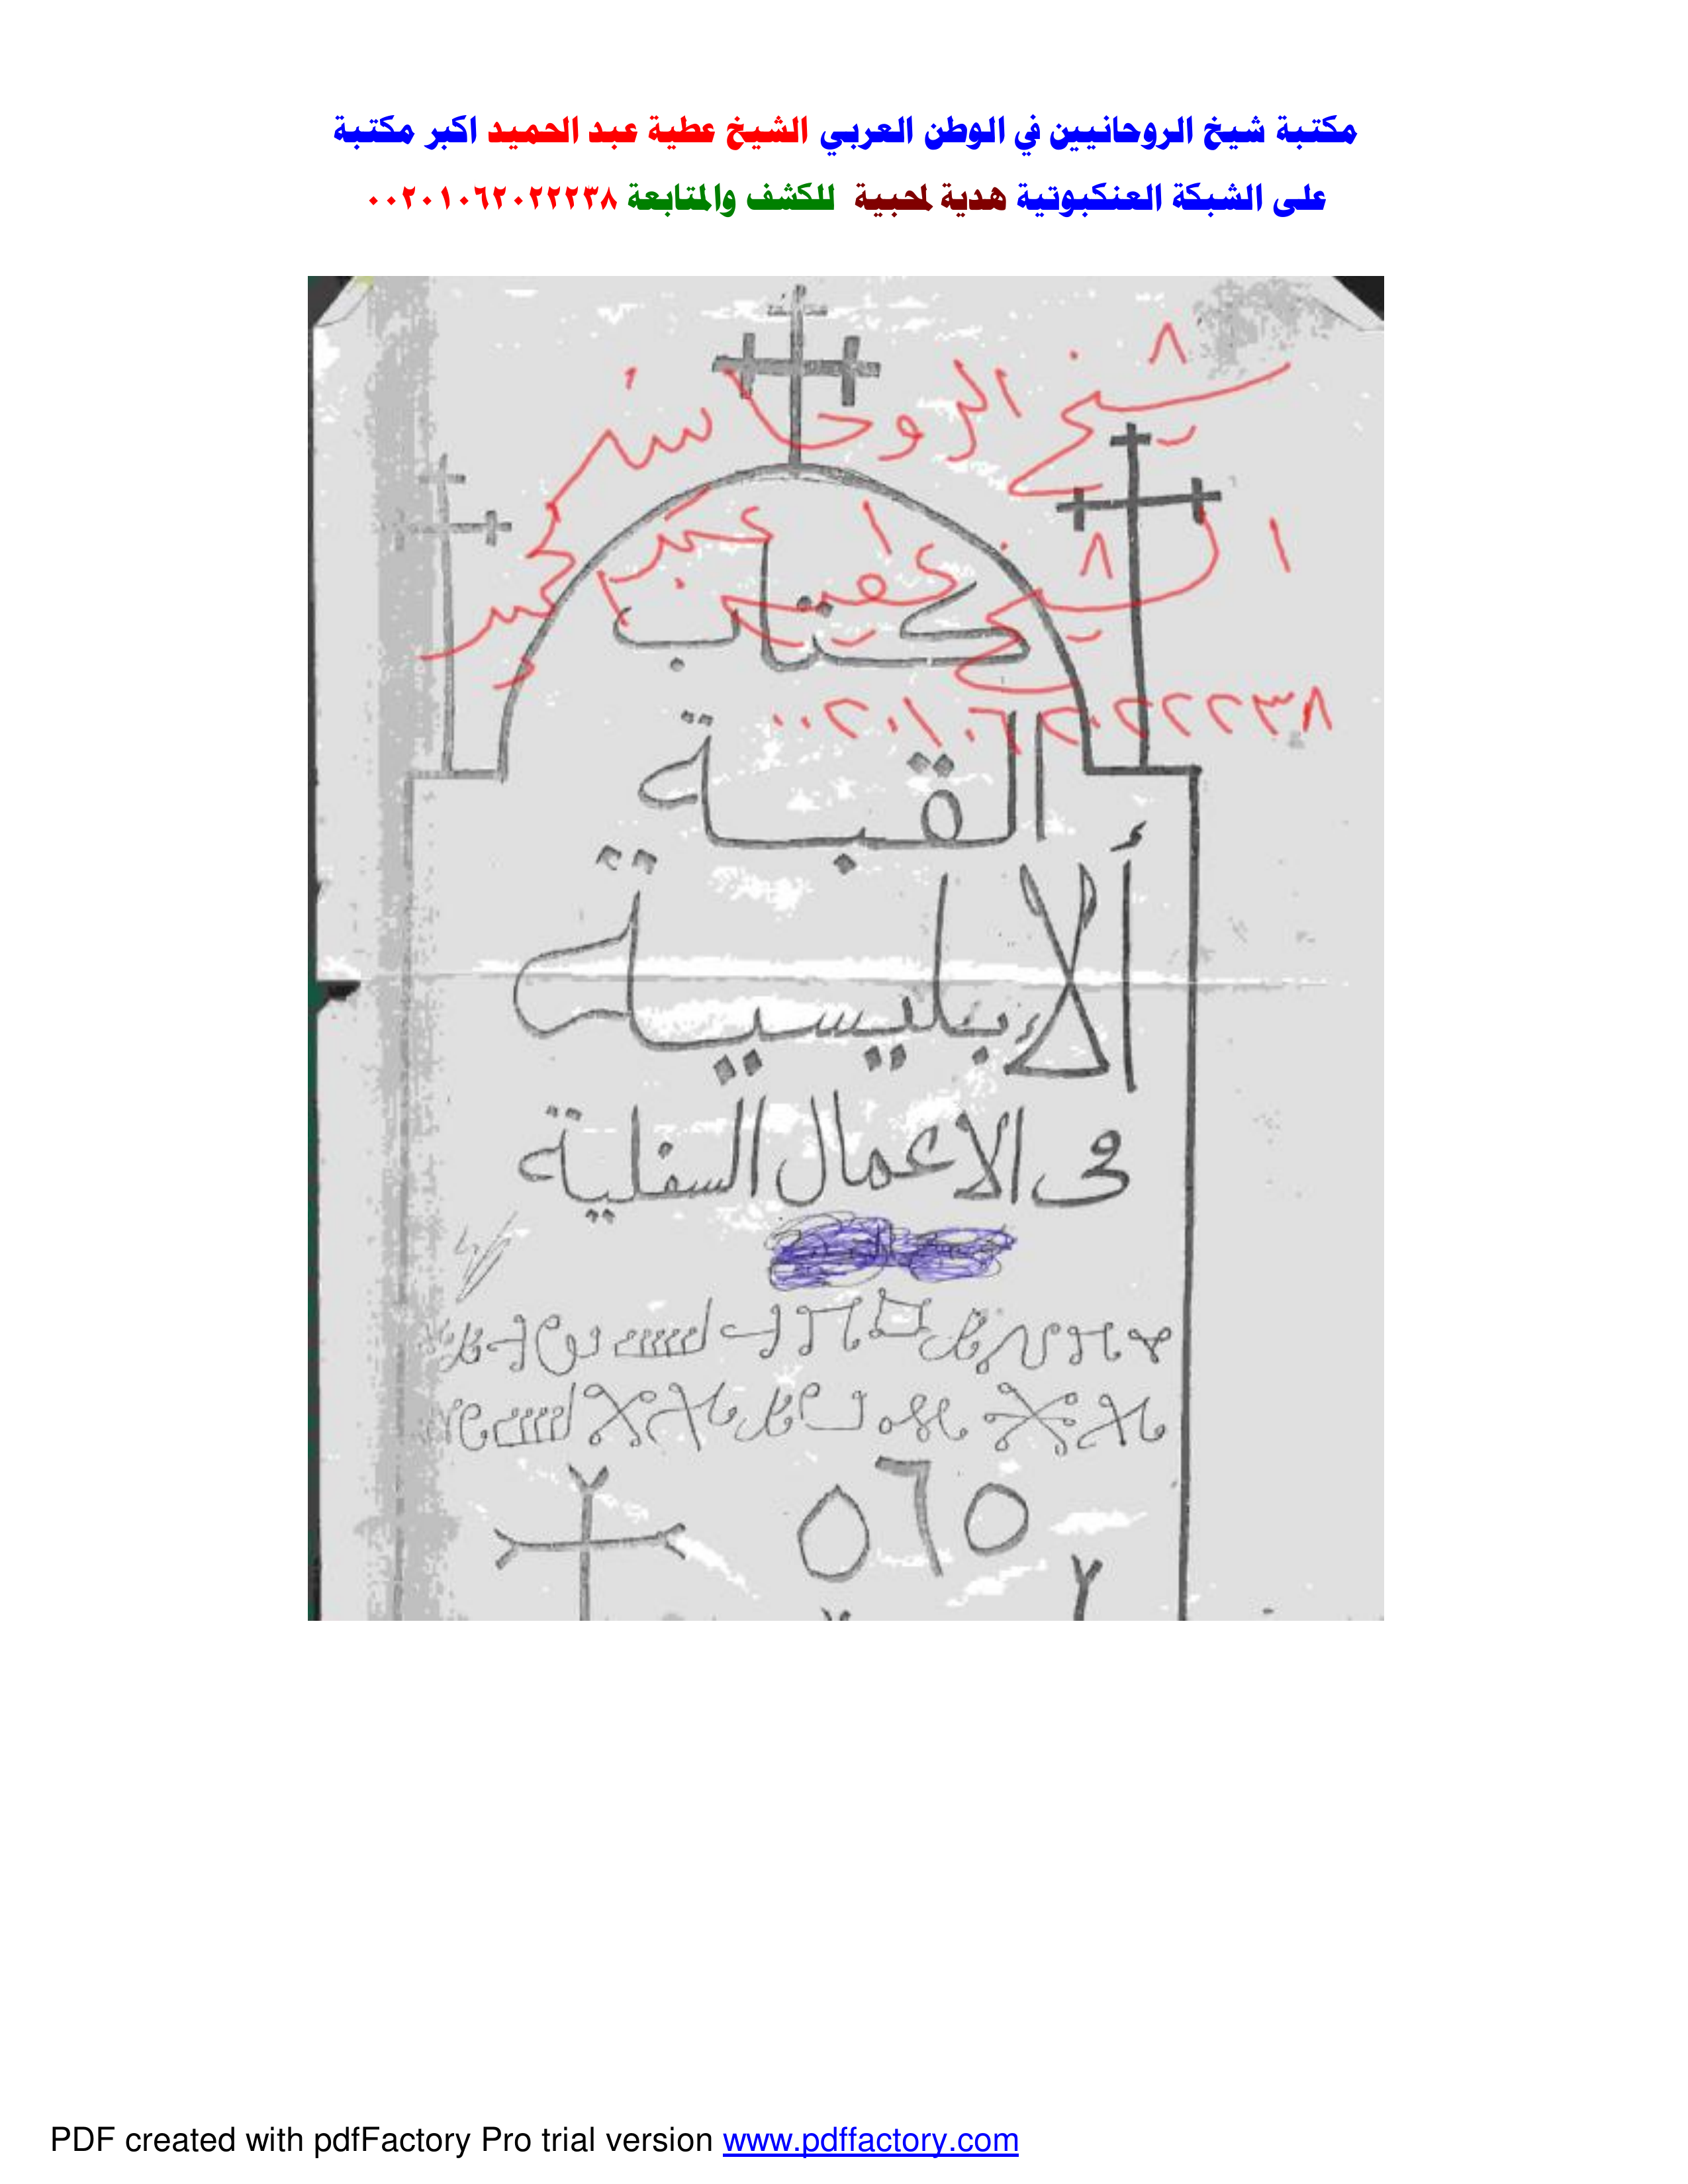 مكتبة شيخ الروحانيين في الوطن العربي الشيخ عطية عبد الحميد اكبر مكتبة
على الشبكة العنكبوتية هدية لمحبية للكشف والمتابعة ٠٠٢٠١٠٦٢٠٢٢٢٣٨
شيخ الروحانيين
الشيخ عطية عبد الحميد
كتاب
٠٠٢٠١٠٦٢٠٢٢٢٣٨
القبة
ألإبليسية
فى الاعمال السفلية
٥٦٥
PDF created with pdfFactory Pro trial version www.pdffactory.com